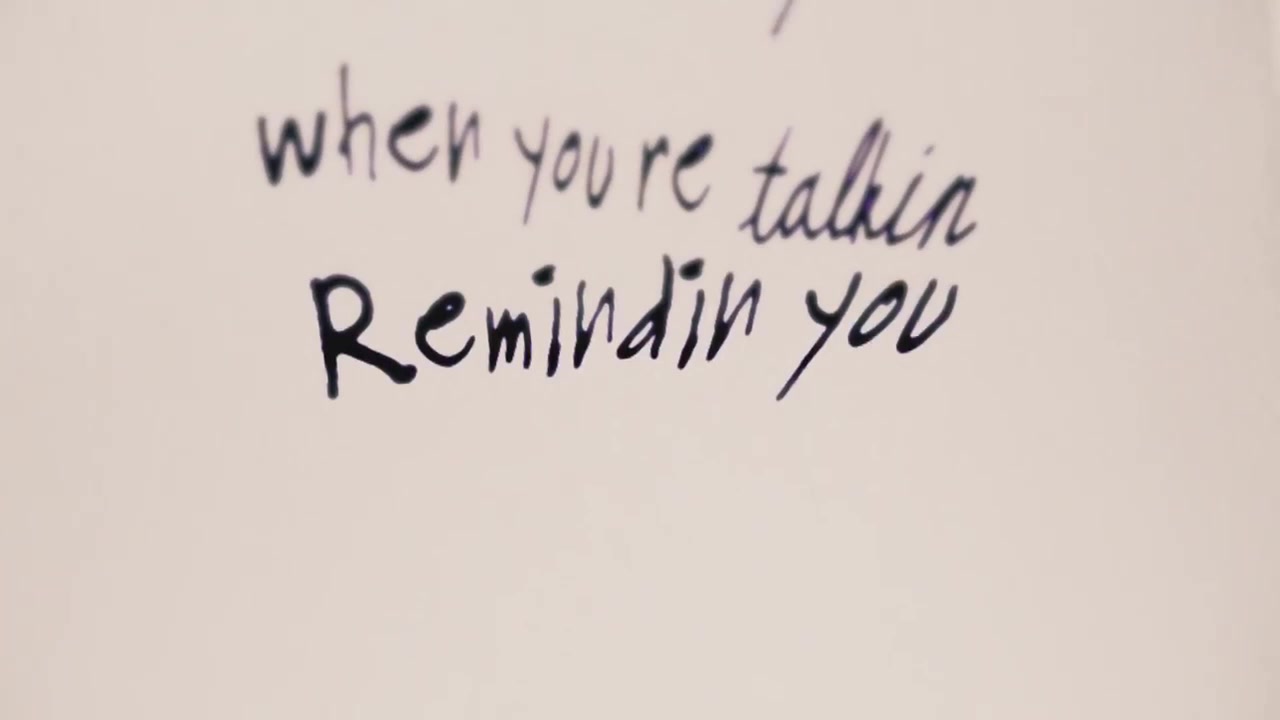 when you're talkin
Remindin you